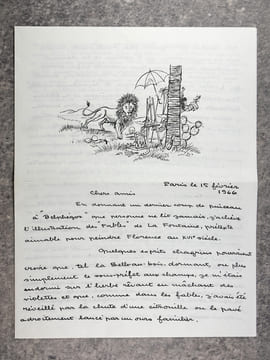 Paris le 15 février
1966
Chers amis
En donnant un dernier coup de pinceau
à "Belphégor" que personne ne lit jamais, j'achève
l'illustration des Fables de La Fontaine, prétexte
aimable pour peindre Florence au XVIe siècle.
Quelques esprits chagrins pourraient
croire que, tel la Belle au bois dormant, ou plus
simplement le sous-préfet aux champs, je m'étais
endormi sur l'herbe rêvant en mâchant des
violettes et que, comme dans les fables, j'avais été
réveillé par la chute d'une citrouille ou le pavé
adroitement lancé par un ours familier.